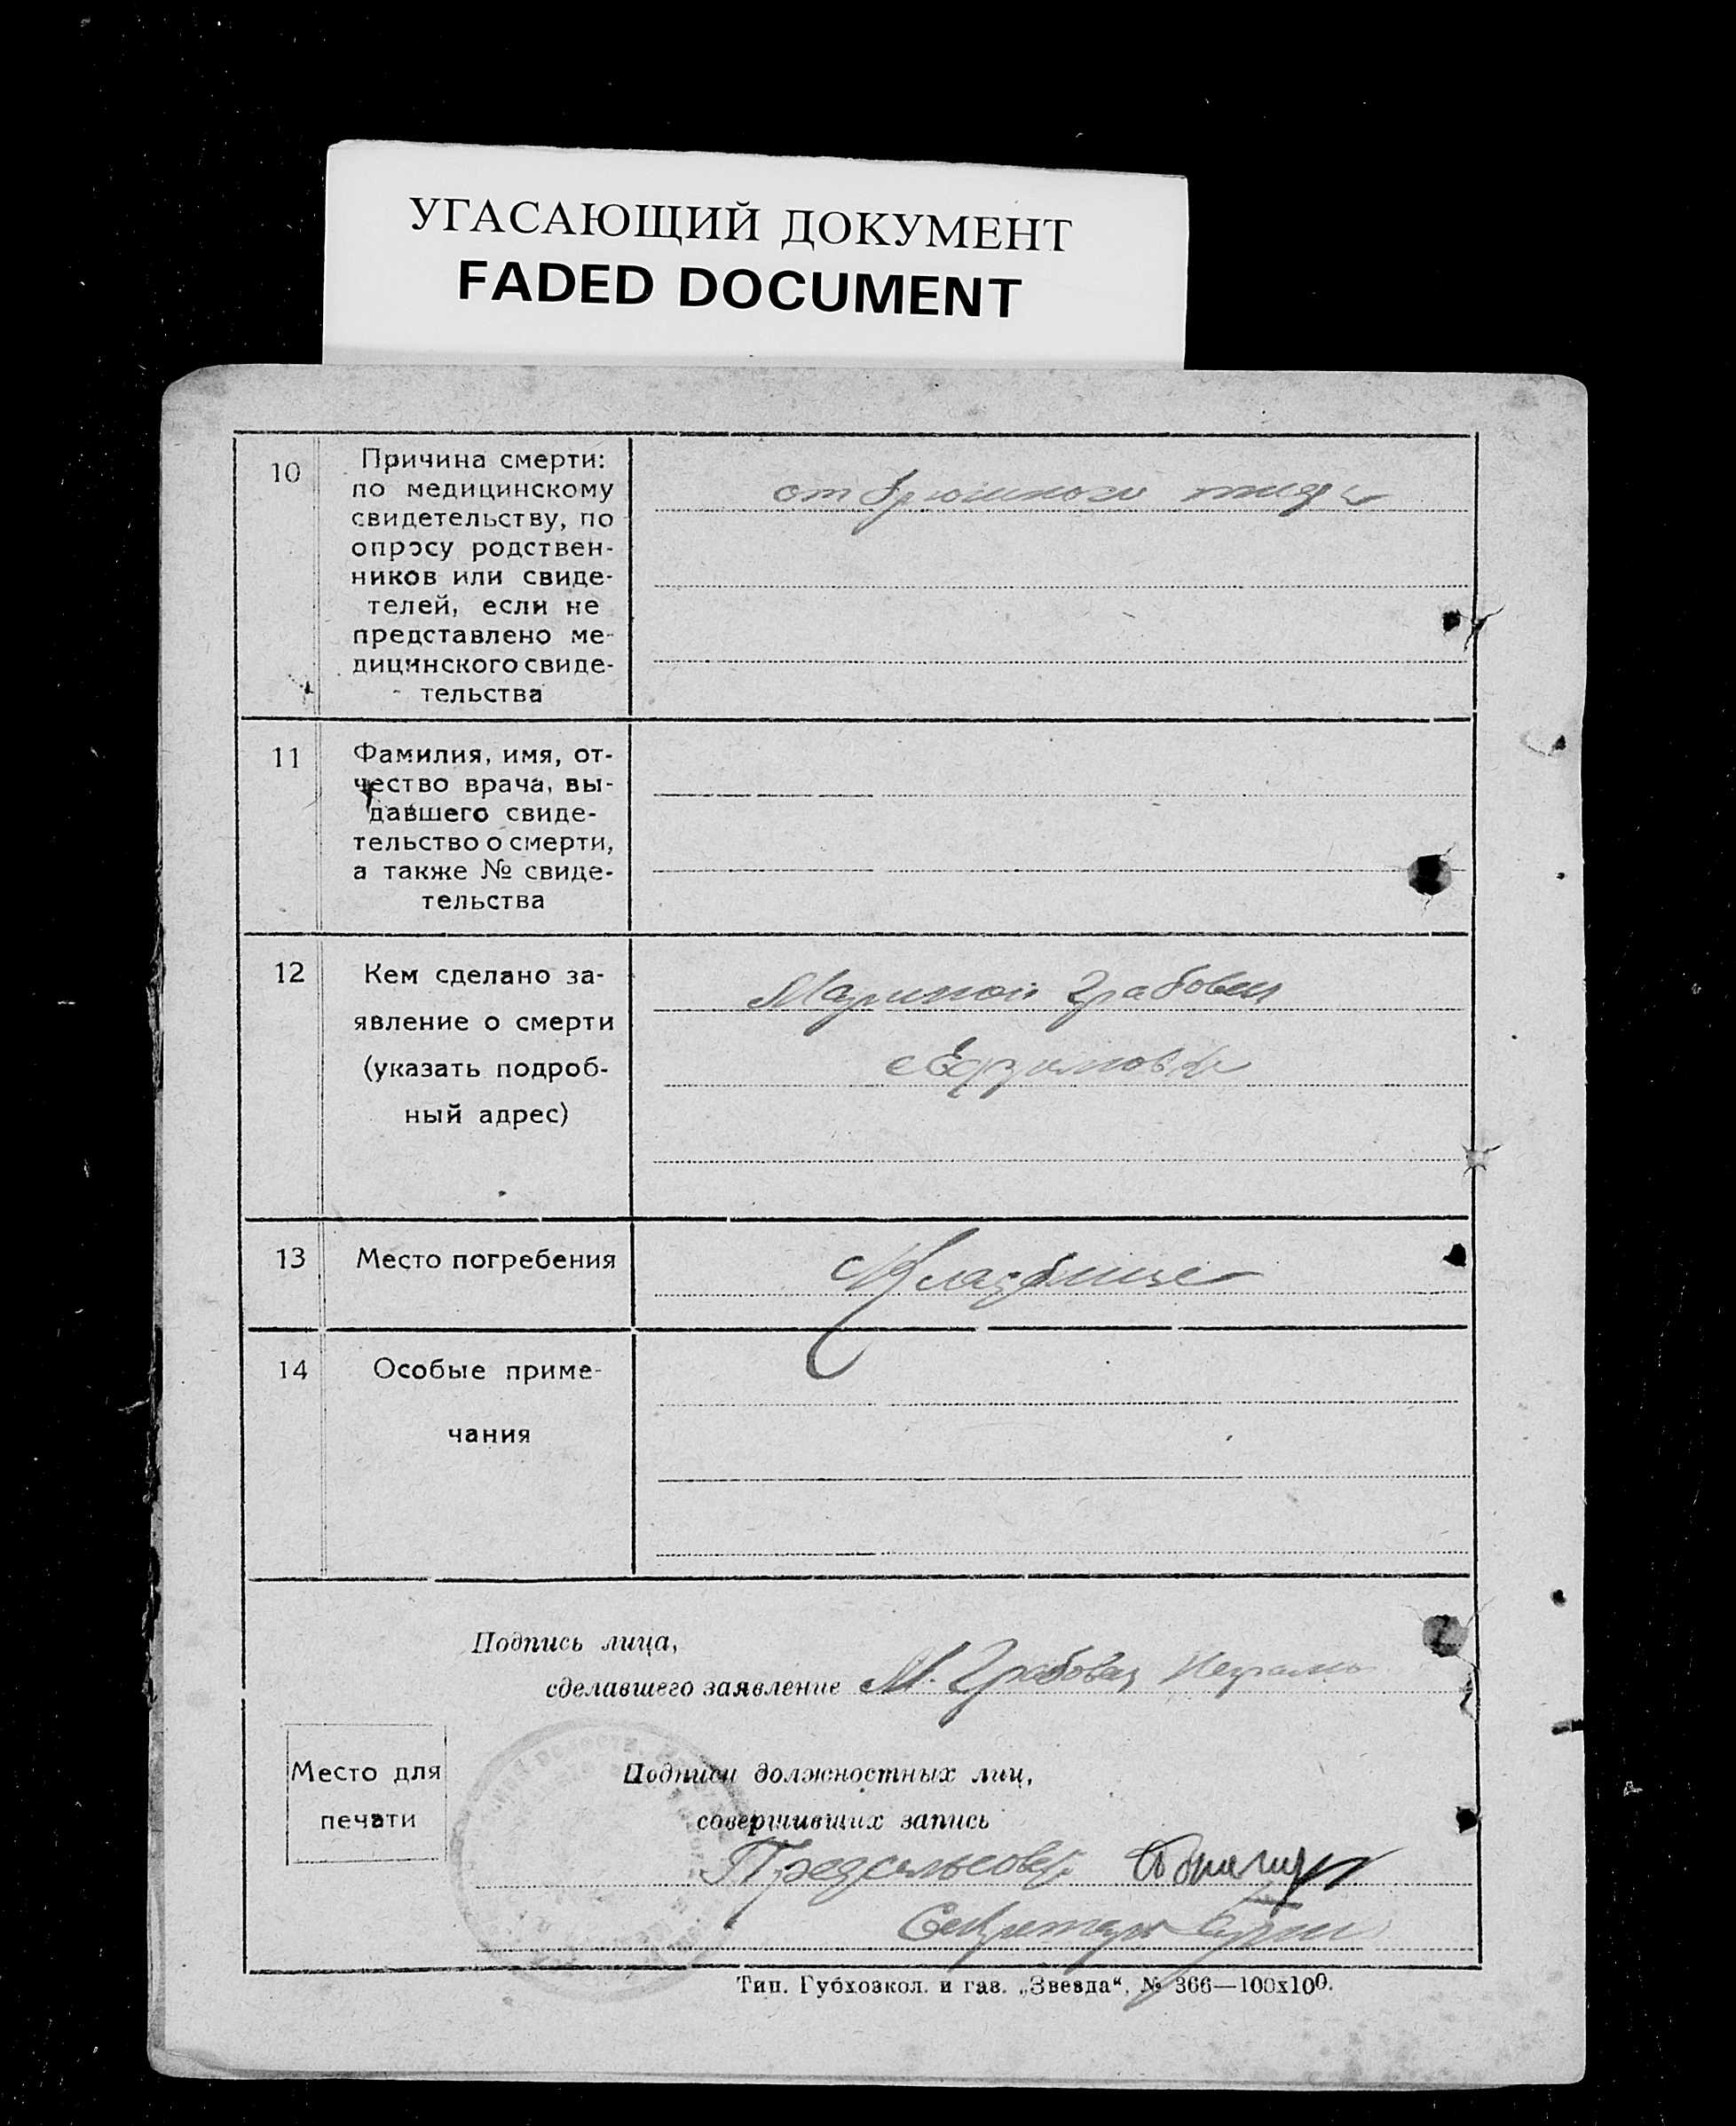 УГАСАЮЩИЙ ДОКУМЕНТ
FADED DOCUMENT
10
Причина смерти:
по медицинскому
свидетельству, по
опросу родствен-
ников или свиде-
телей, если не
представлено ме-
дицинского свиде-
тельства
от брюшного тифа
11
Фамилия, имя, от-
чество врача, вы-
давшего свиде-
тельство о смерти,
а также № свиде-
тельства
12
Кем сделано за-
явление о смерти
(указать подроб-
ный адрес)
Мариной Грабовец
с Ефимовка
13
Место погребения
Кладбище
14
Особые приме-
чания
Подпись лица,
сделавшего заявление М. Грабовец
Место для
печати
Подписи должностных лиц,
совершивших запись
Предсельсовета
Секретарь
Тип. Губхозкол. и газ. „Звезда“, № 366—100х100.